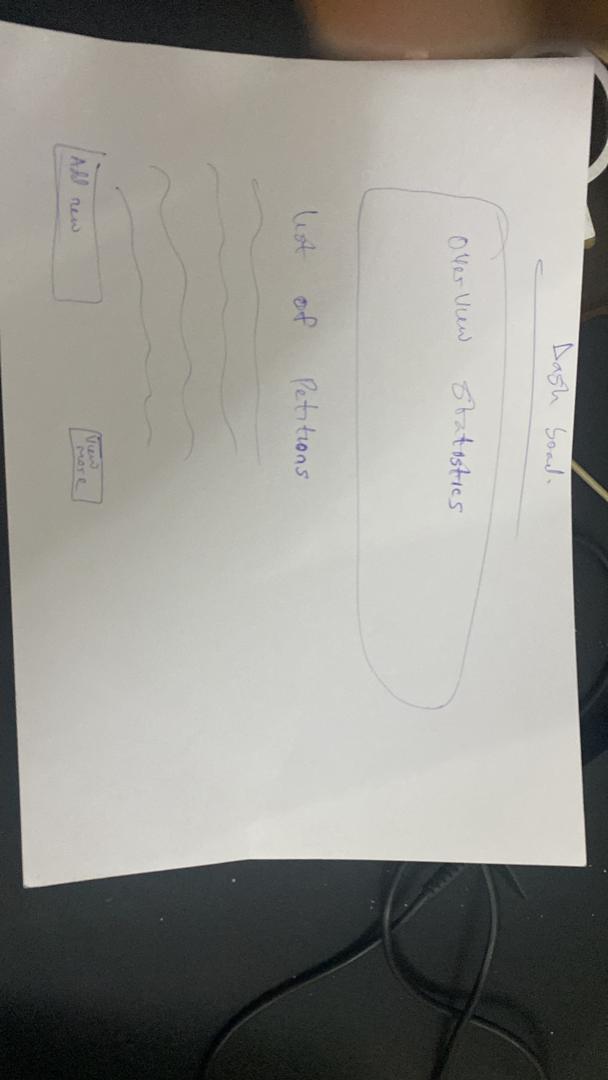 Dash boad.
Overview Statistics
list of Petitions
Add new
View
more